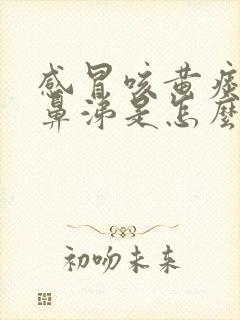 感冒咳黄痰
鼻涕是怎麽
初吻未来